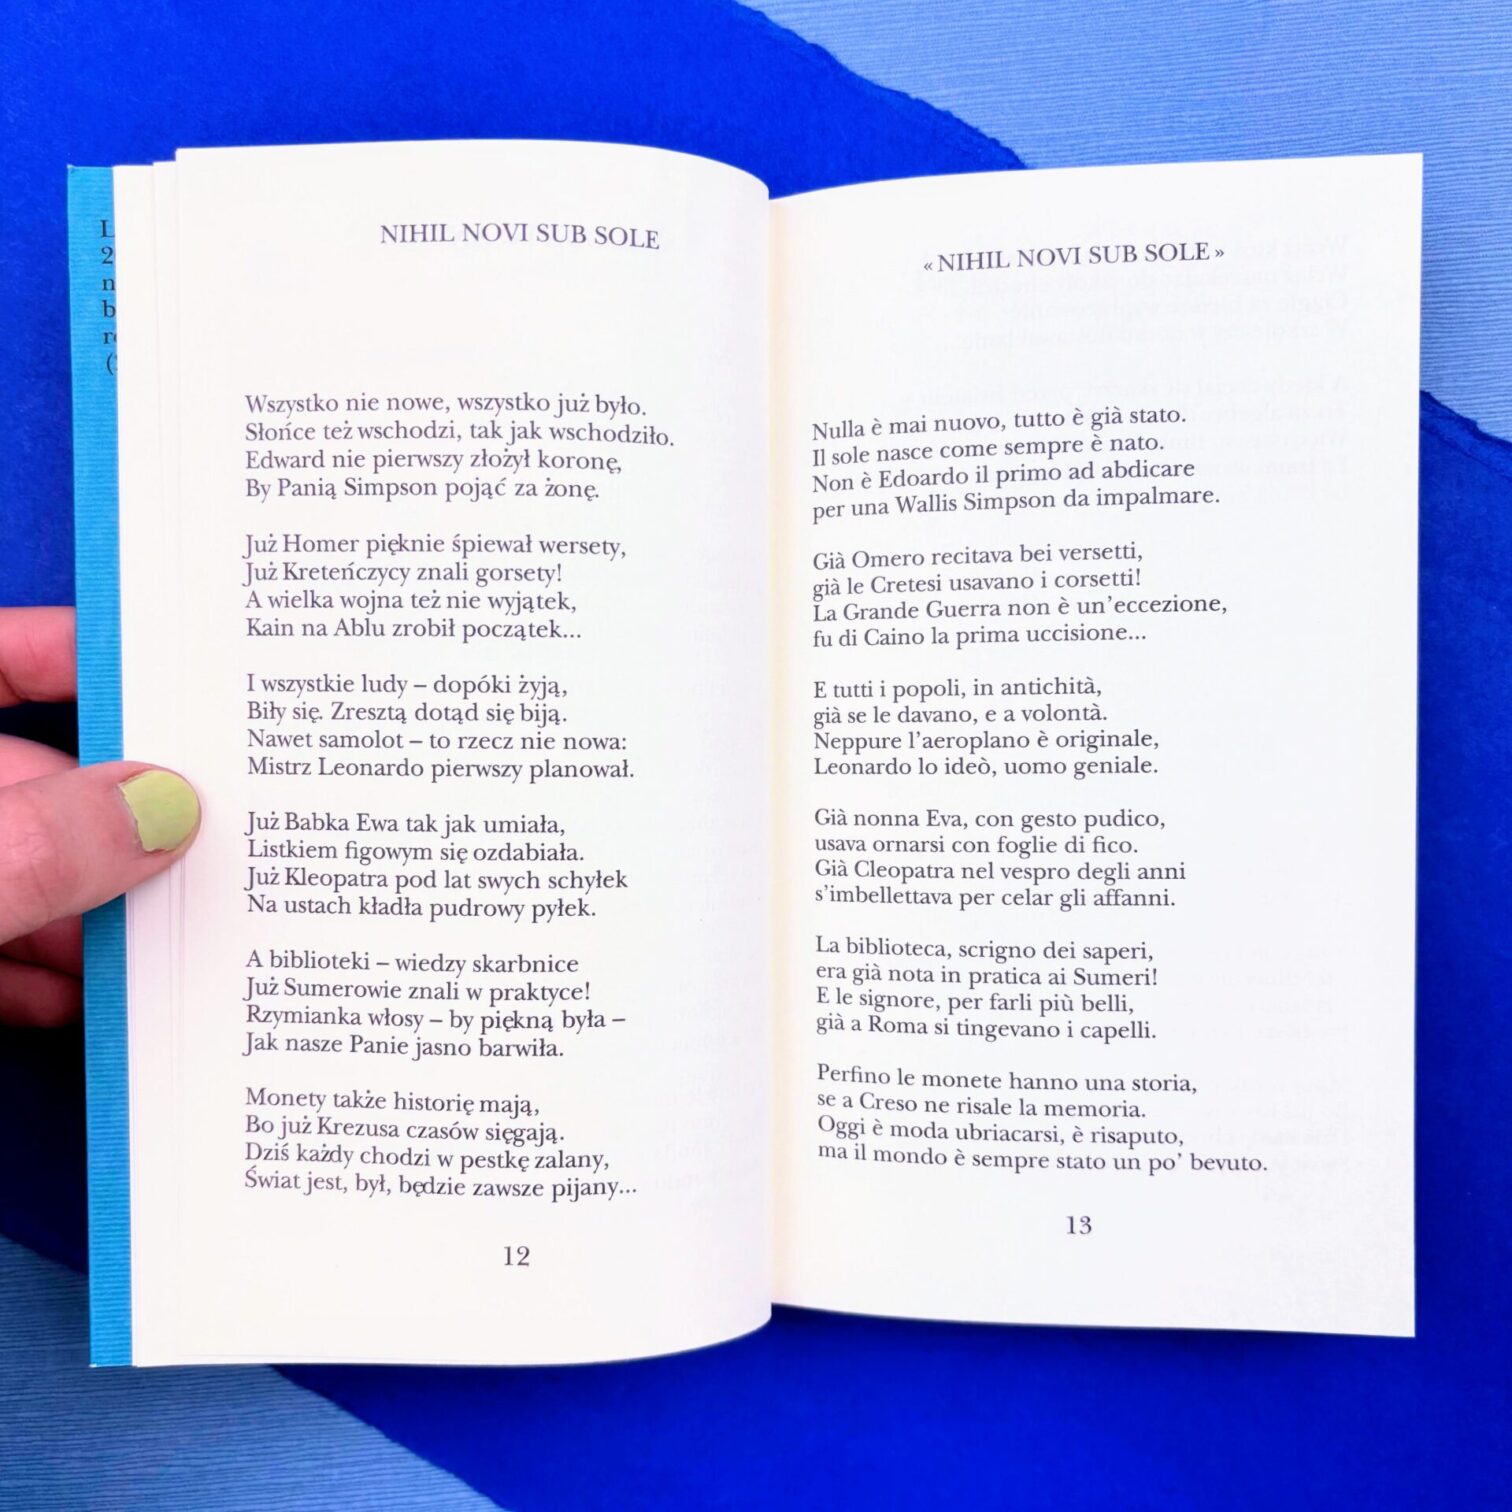 NIHIL NOVI SUB SOLE
Wszystko nie nowe, wszystko już było.
Słońce też wschodzi, tak jak wschodziło.
Edward nie pierwszy złożył koronę,
By Panią Simpson pojąć za żonę.
Już Homer pięknie śpiewał wersety,
Już Kreteńczycy znali gorsety!
A wielka wojna też nie wyjątek,
Kain na Ablu zrobił początek...
I wszystkie ludy – dopóki żyją,
Biły się. Zresztą dotąd się biją.
Nawet samolot – to rzecz nie nowa:
Mistrz Leonardo pierwszy planował.
Już Babka Ewa tak jak umiała,
Listkiem figowym się ozdabiała.
Już Kleopatra pod lat swych schyłek
Na ustach kładła pudrowy pyłek.
A biblioteki – wiedzy skarbnice
Już Sumerowie znali w praktyce!
Rzymianka włosy – by piękną była –
Jak nasze Panie jasno barwiła.
Monety także historię mają,
Bo już Krezusa czasów sięgają.
Dziś każdy chodzi w pestkę zalany,
Świat jest, był, będzie zawsze pijany...
12
« NIHIL NOVI SUB SOLE »
Nulla è mai nuovo, tutto è già stato.
Il sole nasce come sempre è nato.
Non è Edoardo il primo ad abdicare
per una Wallis Simpson da impalmare.
Già Omero recitava bei versetti,
già le Cretesi usavano i corsetti!
La Grande Guerra non è un’eccezione,
fu di Caino la prima uccisione...
E tutti i popoli, in antichità,
già se le davano, e a volontà.
Neppure l’aeroplano è originale,
Leonardo lo ideò, uomo geniale.
Già nonna Eva, con gesto pudico,
usava ornarsi con foglie di fico.
Già Cleopatra nel vespro degli anni
s’imbellettava per celar gli affanni.
La biblioteca, scrigno dei saperi,
era già nota in pratica ai Sumeri!
E le signore, per farli più belli,
già a Roma si tingevano i capelli.
Perfino le monete hanno una storia,
se a Creso ne risale la memoria.
Oggi è moda ubriacarsi, è risaputo,
ma il mondo è sempre stato un po’ bevuto.
13